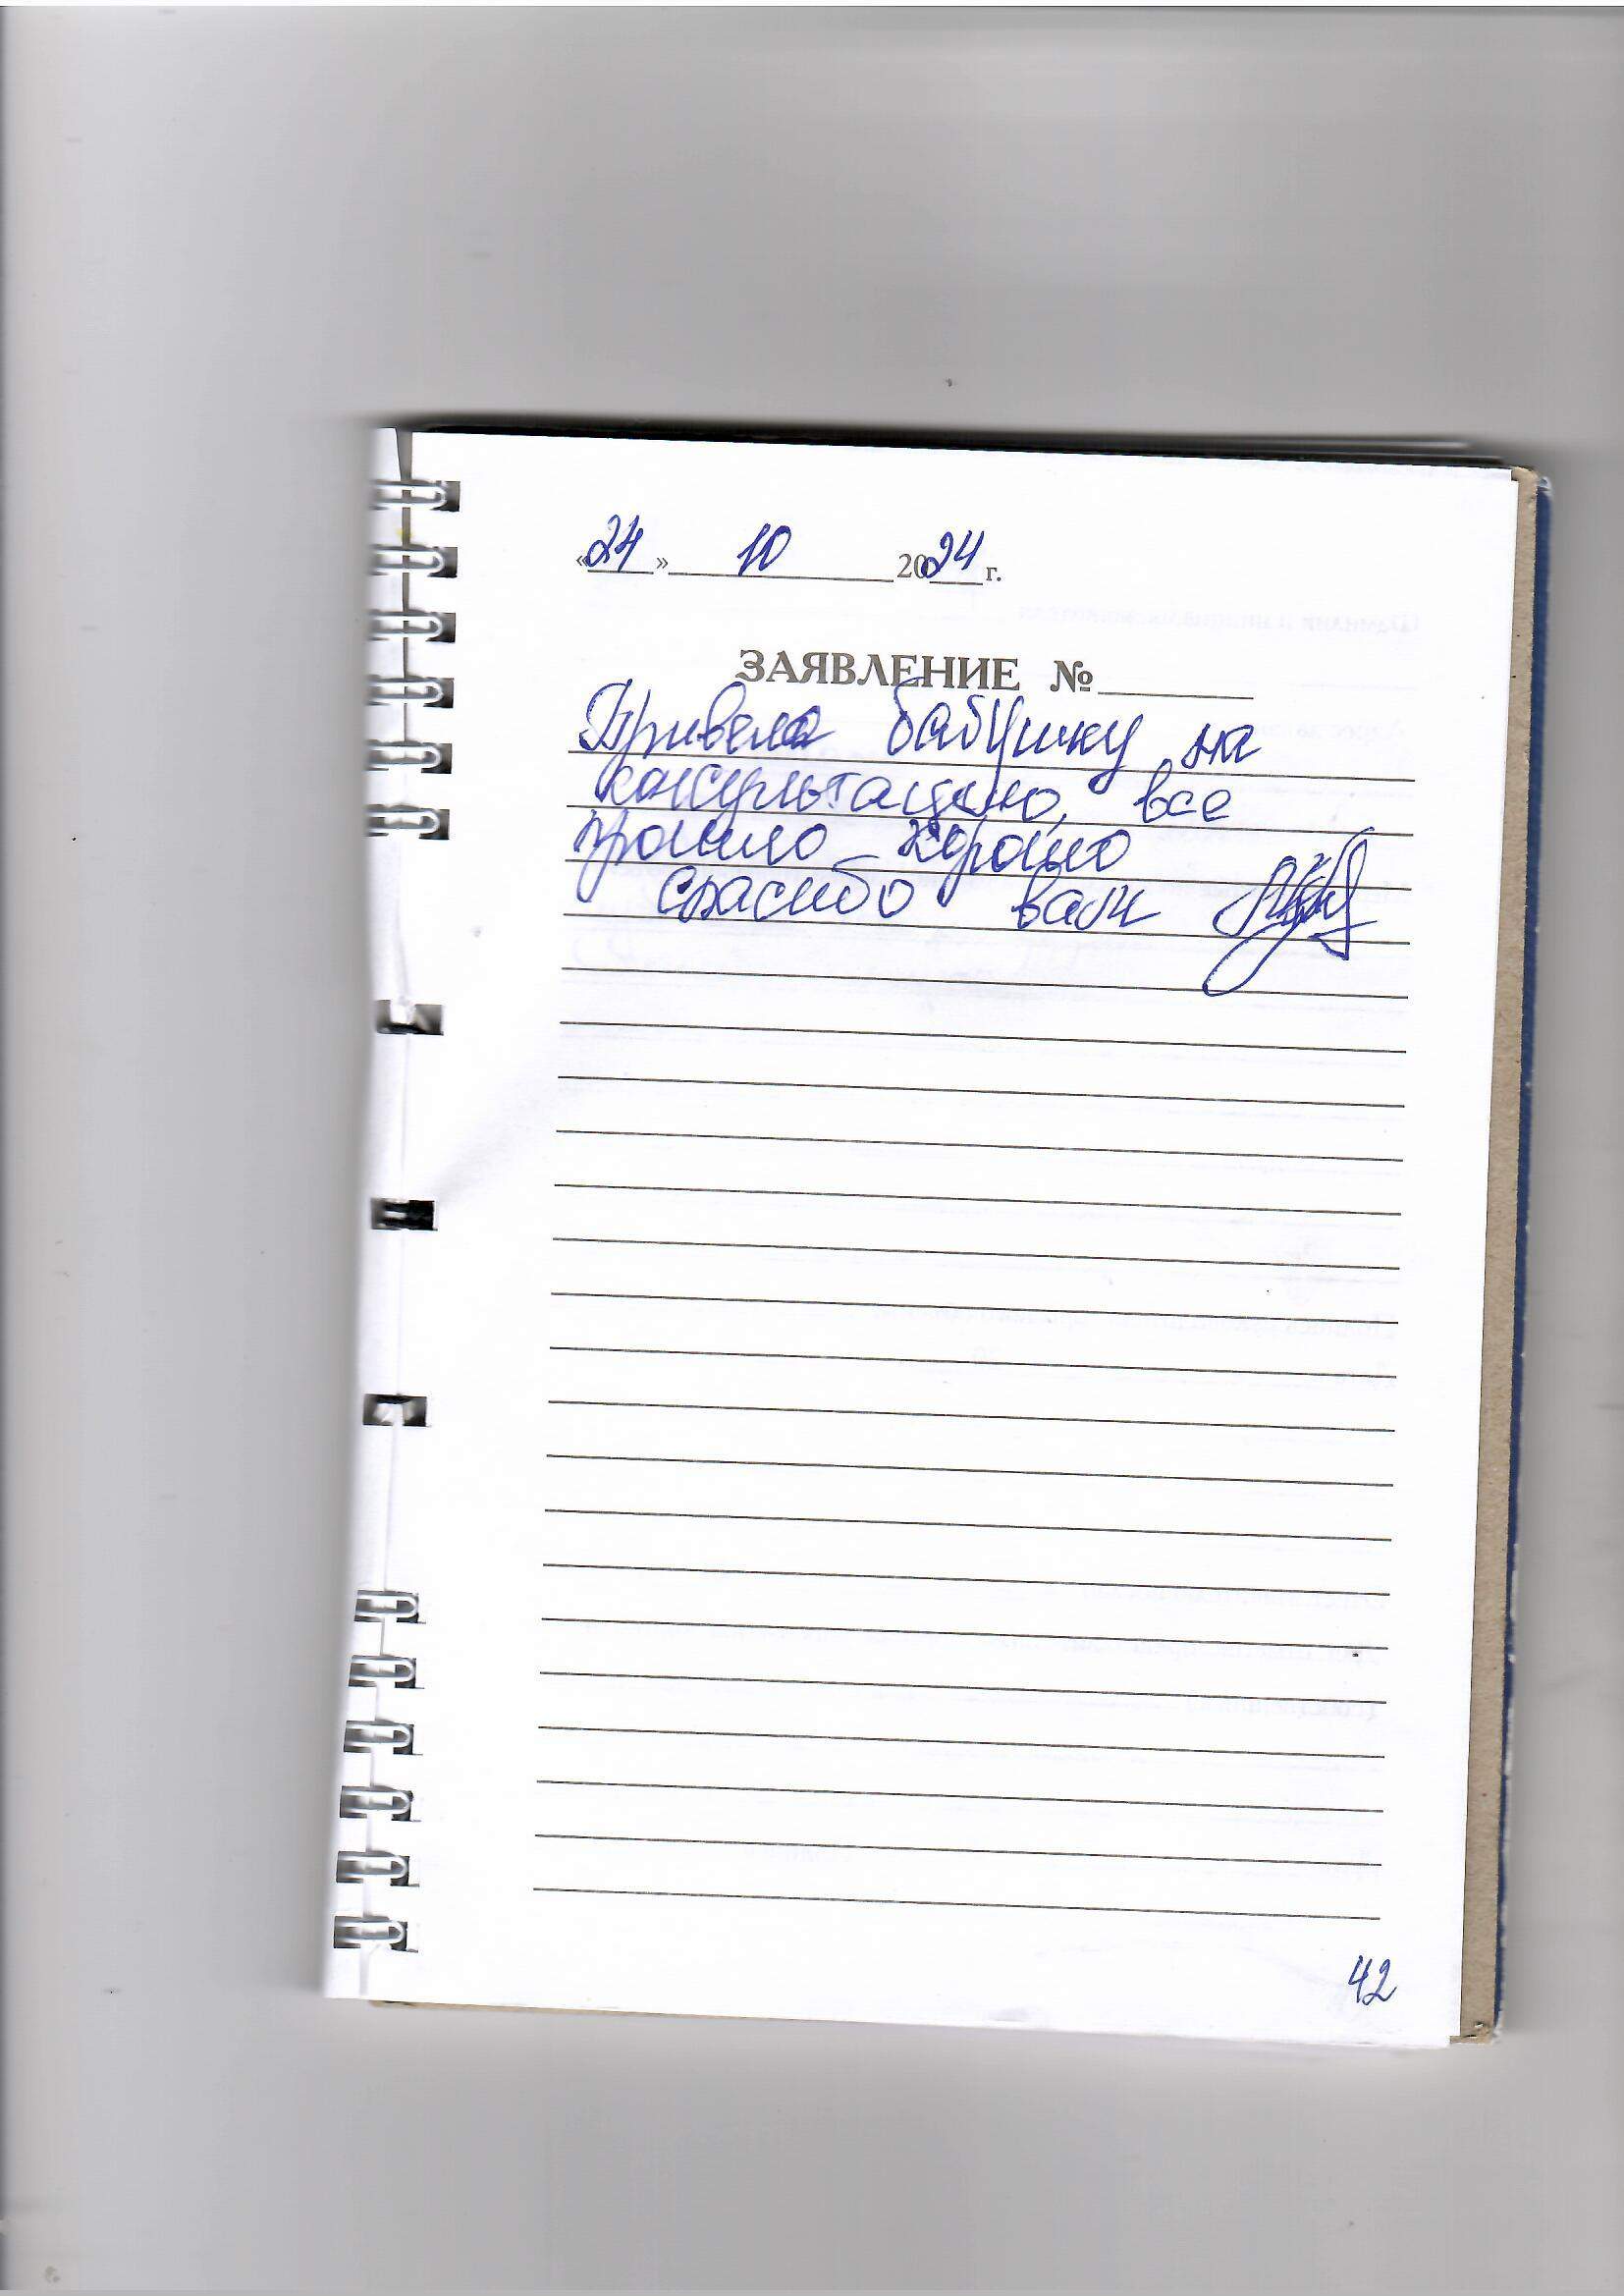 «24» 10 2024 г.
ЗАЯВЛЕНИЕ №
Привела бабушку на
консультацию, все
прошло хорошо
Спасибо вам
42